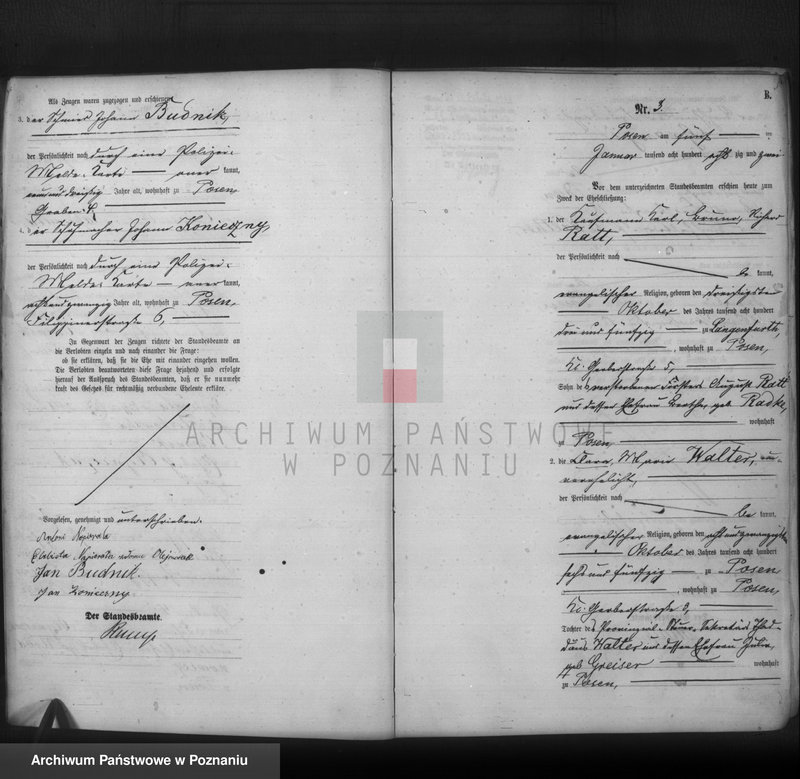 Als Zeugen waren zugezogen und erschienen:
3. der Schmied Johann Budnik,
der Persönlichkeit nach durch eine Polizei-
Melde-Karte — aner kannt,
neununddreißig Jahre alt, wohnhaft zu Posen
Graben
4. der Schuhmacher Johann Konieczny,
der Persönlichkeit nach durch eine Polizei-
Melde-Karte — aner kannt,
achtundzwanzig Jahre alt, wohnhaft zu Posen,
Filippinerstraße 6,
In Gegenwart der Zeugen richtete der Standesbeamte an
die Verlobten einzeln und nach einander die Frage:
ob sie erklären, daß sie die Ehe mit einander eingehen wollen.
Die Verlobten beantworteten diese Frage bejahend und erfolgte
hierauf der Ausspruch des Standesbeamten, daß er sie nunmehr
kraft des Gesetzes für rechtmäßig verbundene Eheleute erkläre.
Vorgelesen, genehmigt und unterschrieben.
Antoni Napierała
Elżbieta Napierała
Jan Budnik.
Jan Konieczny
Der Standesbeamte.
B.
Nr. 3.
Posen am fünf — ten
Januar tausend acht hundert acht zig und zwei
Vor dem unterzeichneten Standesbeamten erschien heute zum
Zweck der Eheschließung:
1. der Kaufmann Karl, Bruno, Richard
Ratt,
der Persönlichkeit nach
be kannt,
evangelischer Religion, geboren den dreißigsten
Oktober des Jahres tausend acht hundert
drei und fünfzig — zu Langenfurth,
, wohnhaft zu Posen,
Kl. Gerberstraße 5,
Sohn des verstorbenen Försters August Ratt
und dessen Ehefrau Bertha, geb. Radke,
wohnhaft
zu Posen
2. die Klara, Marie Walter, un-
verehelicht,
der Persönlichkeit nach
be kannt,
evangelischer Religion, geboren den achtundzwanzigsten
Oktober des Jahres tausend acht hundert
sechs und fünfzig — zu Posen
, wohnhaft zu Posen,
Kl. Gerberstraße 9,
Tochter des Provinzial-Steuer-Sekretärs Thad-
däus Walter und dessen Ehefrau Julie,
geb. Greiser — wohnhaft
zu Posen,
ARCHIWUM PAŃSTWOWE
W POZNANIU
Archiwum Państwowe w Poznaniu